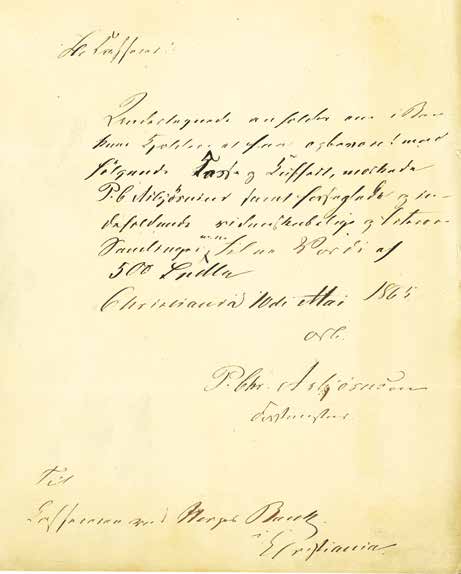 Undertegnede anholder om i Ban
kens Kjelder at faa opbevaret med
følgende Kasse og Kuffert, mærkede
P.C Asbjörnsen samt forseglede og in-
deholdende videnskabelige og literære
Samlinger til en Værdi af
500 Spdlr
Christiania 10de Mai 1865
P. Chr. Asbjörnsen
Forstmester
Til
Kassereren ved Norges Bank
Christiania.